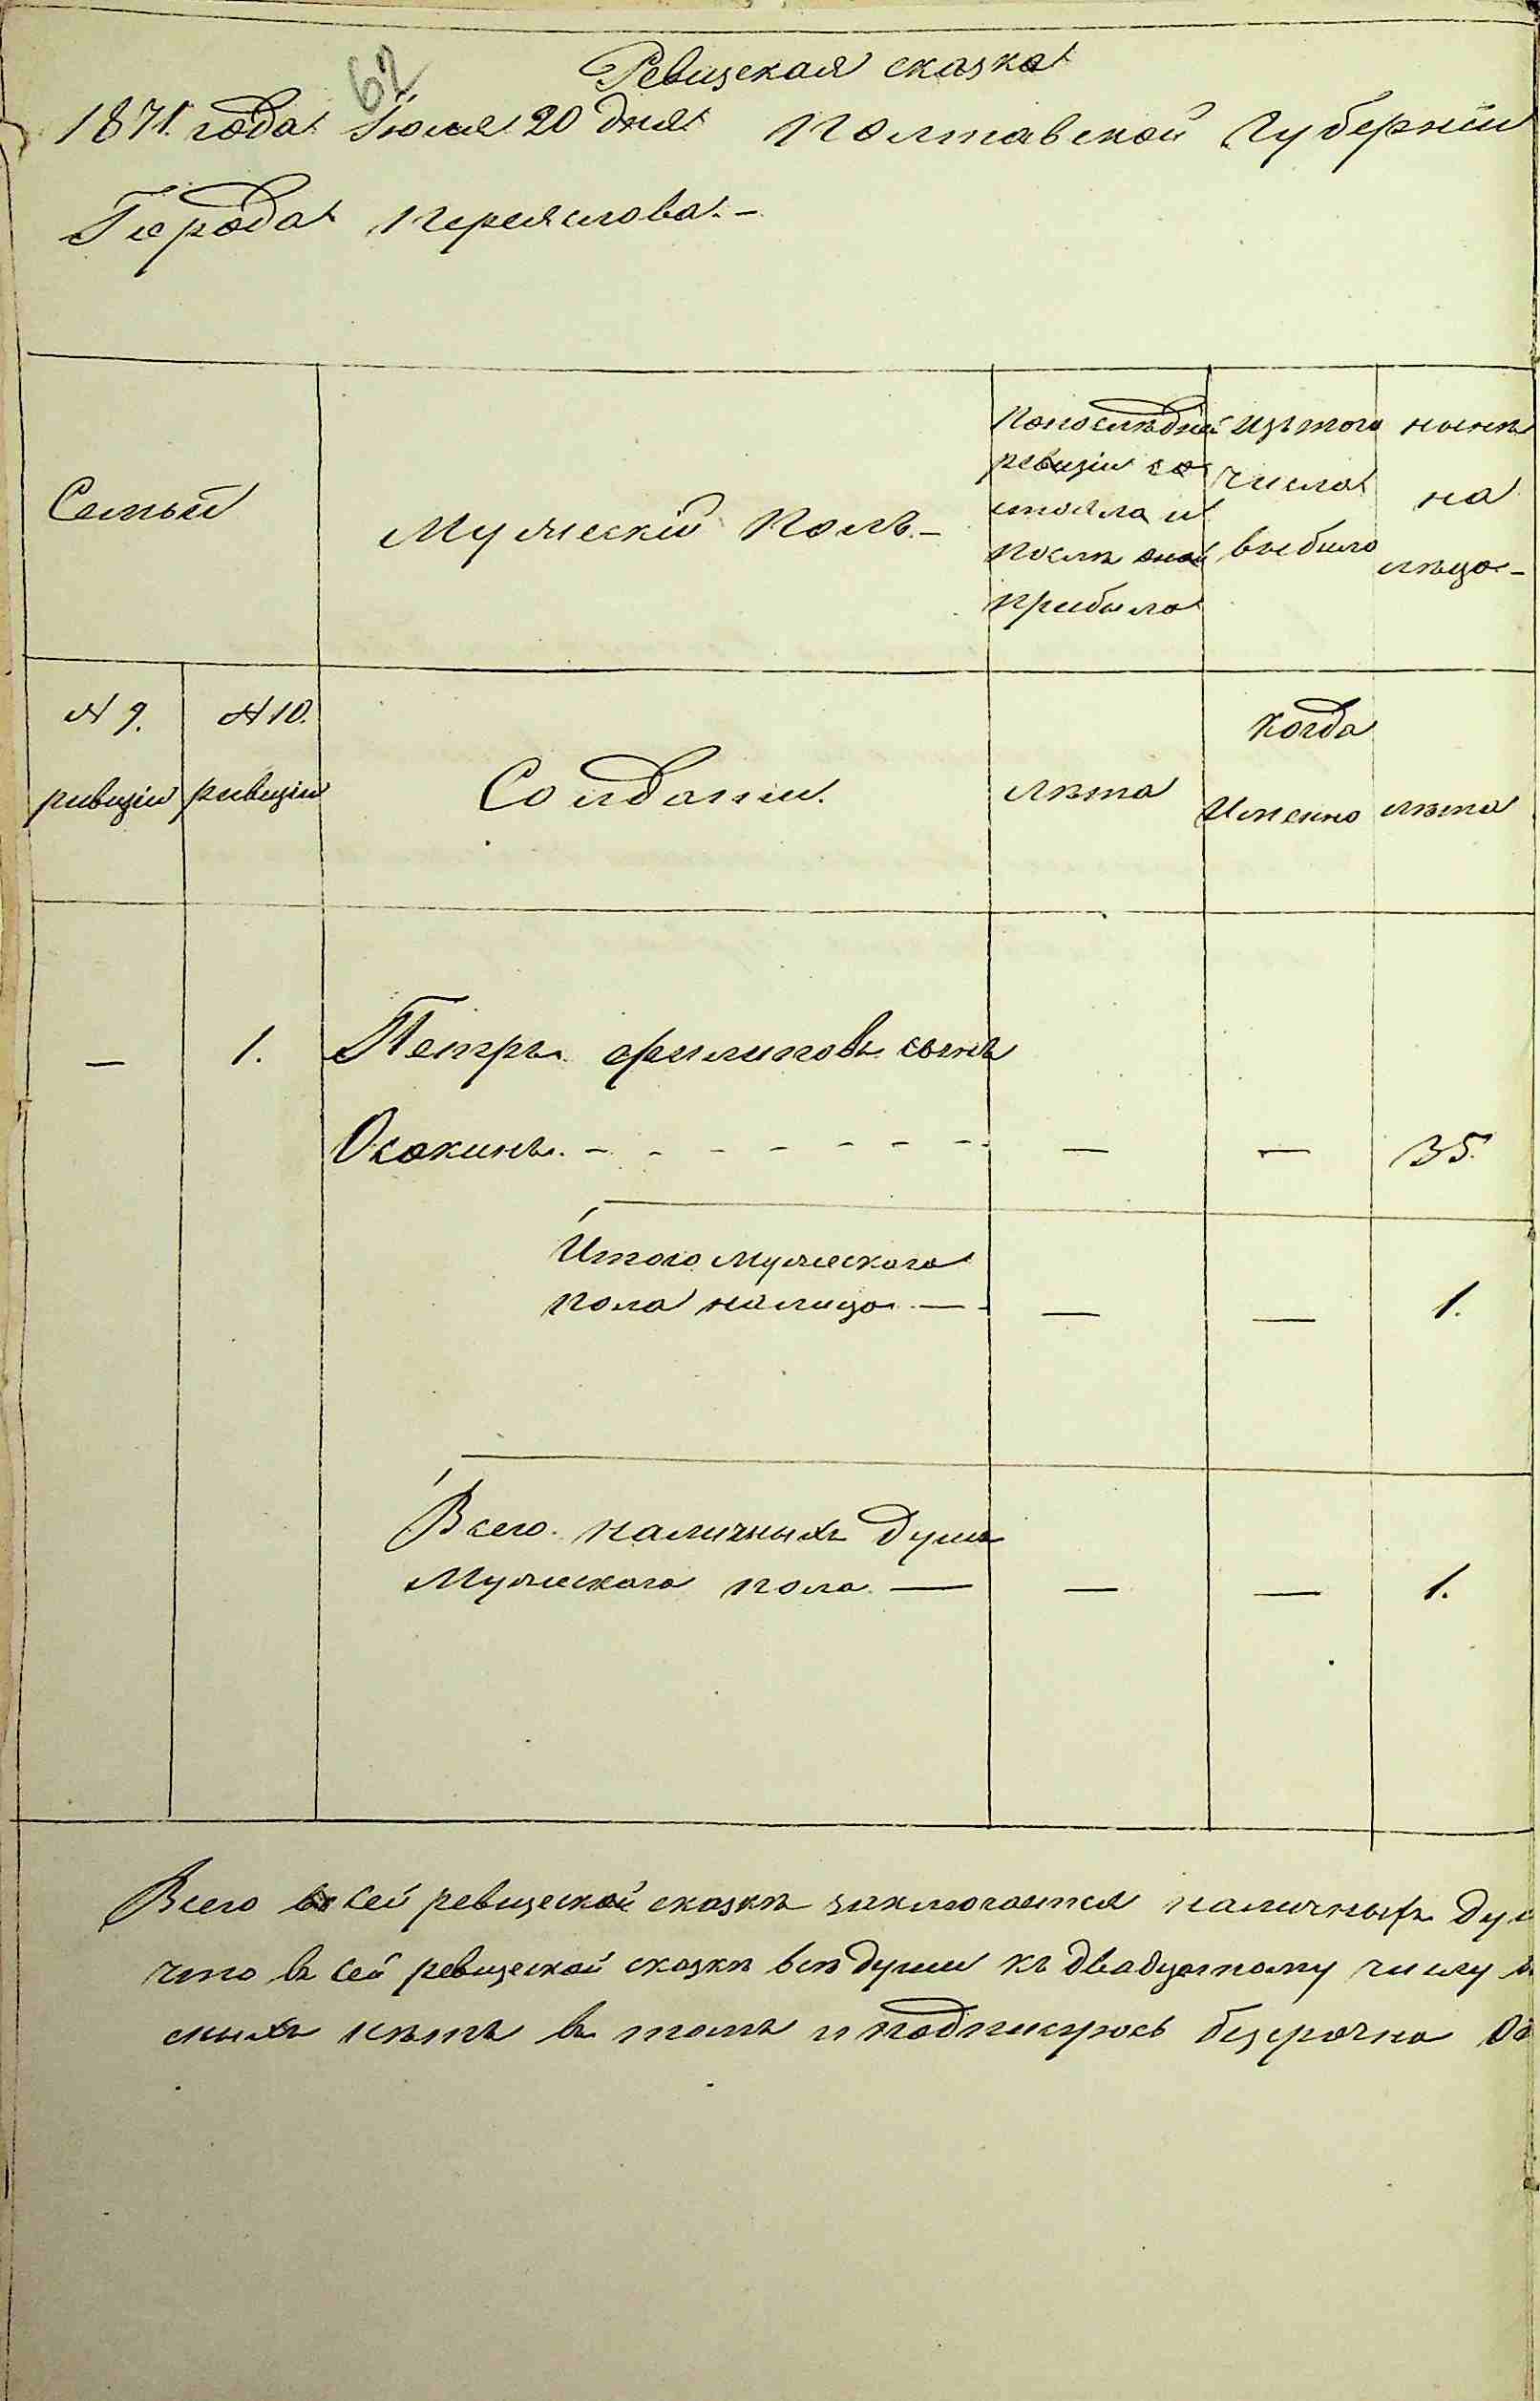 62
Ревизская сказка
1871 года Июля 20 дня Полтавской Губерніи
Города Переяслова.-
Семьи
Мужескій Полъ.-
Попоследней
ревизіи со
стояла и
после оной
прибыло
изътого
числа
выбыло
ныне
на
лецо-
№ 9.
ревизіи
№ 10.
ревизіи
Солдаты.
лета
Когда
Именно
лета
— 1. Петръ Филиповъ сынъ
Осокинъ. - - - - - - - - — — 35.
Итого мужескаго
пола налицо — — — 1.
Всего наличныхъ душъ
Мужескаго пола — — — 1.
Всего въ сей ревизской сказке заключается наличныхъ ду
что въ сей ревизской сказке все души къ двадцатому числу
ныхъ нетъ в томъ и подписуюсь безсрочно